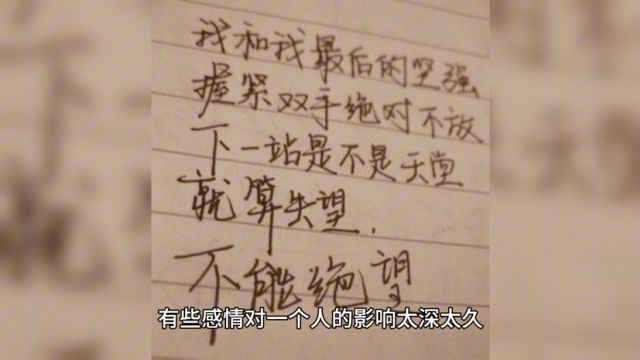 我和我最后的坚强
握紧双手绝对不放
下一站是不是天堂
就算失望,
不能绝望
有些感情对一个人的影响太深太久